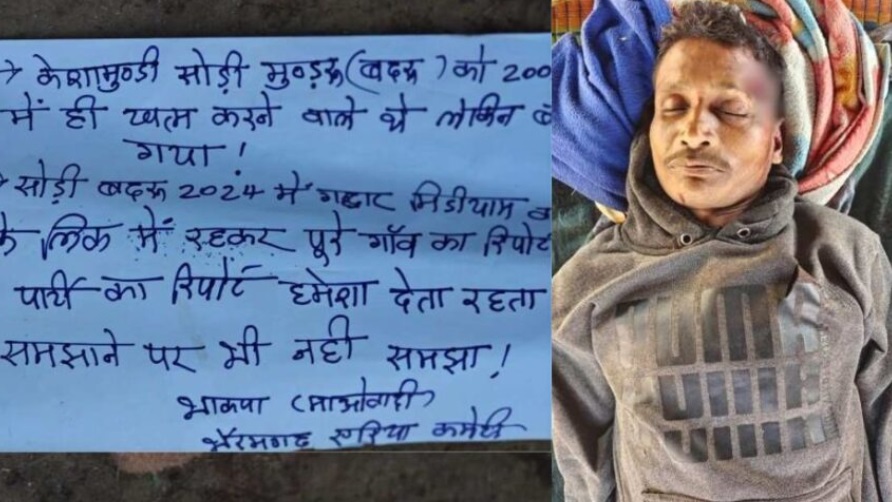 → केशामुण्डी सोड़ी मुण्ड्रू (बदरू) को 200
में ही खत्म करने वाले थे लेकिन ब
गया!
→ सोड़ी बदरू 2024 में गद्दार मिडीयाम ब
के लिंक में रहकर पूरे गाँव का रिपोर्ट
पार्टी का रिपोर्ट हमेशा देता रहता
समझाने पर भी नही समझा!
भाकपा (माओवादी)
भैरमगढ़ एरिया कमेटी